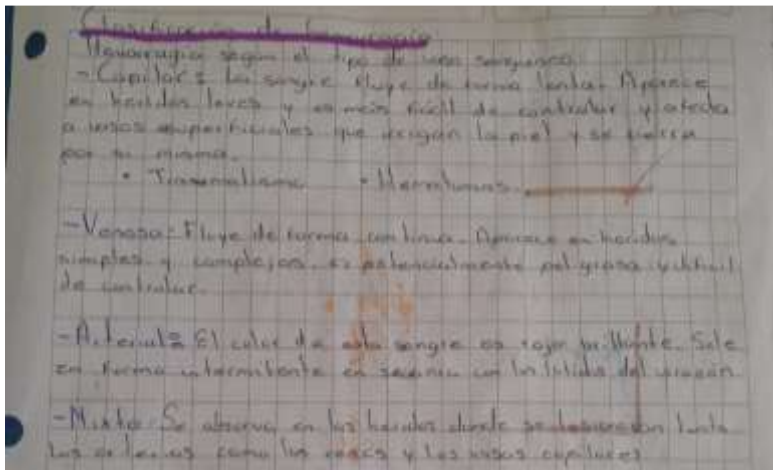 Clasificación de hemorragia
Hemorragia según el tipo de vaso sanguíneo.
- Capilar: La sangre fluye de forma lenta. Aparece
en heridas leves y es más fácil de controlar y afecta
a vasos superficiales que irrigan la piel y se cierra
por si misma.
• Hematomas
- Venosa: Fluye de forma continua. Aparece en heridas
simples y complejas, es potencialmente peligrosa y difícil
de controlar.
- Arterial: El color de esta sangre es rojo brillante. Sale
en forma intermitente en con los latidos del corazón
- Mixta: Se observa en las heridas donde se tanto
las arterias como las venas y los vasos capilares